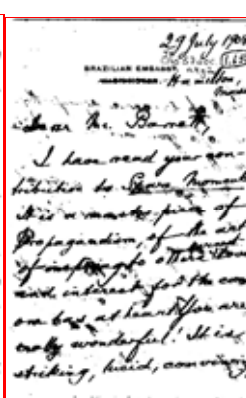 29 July 1908
BRAZILIAN EMBASSY
Hamilton,
Dear Mr. Barrett,
I have read your con-
tribution to
It is a master piece of
Propagandism, of the art
of inspiring to others
and interest for the
one has at heart. You are
really wonderful! It is
striking, lucid, convincing